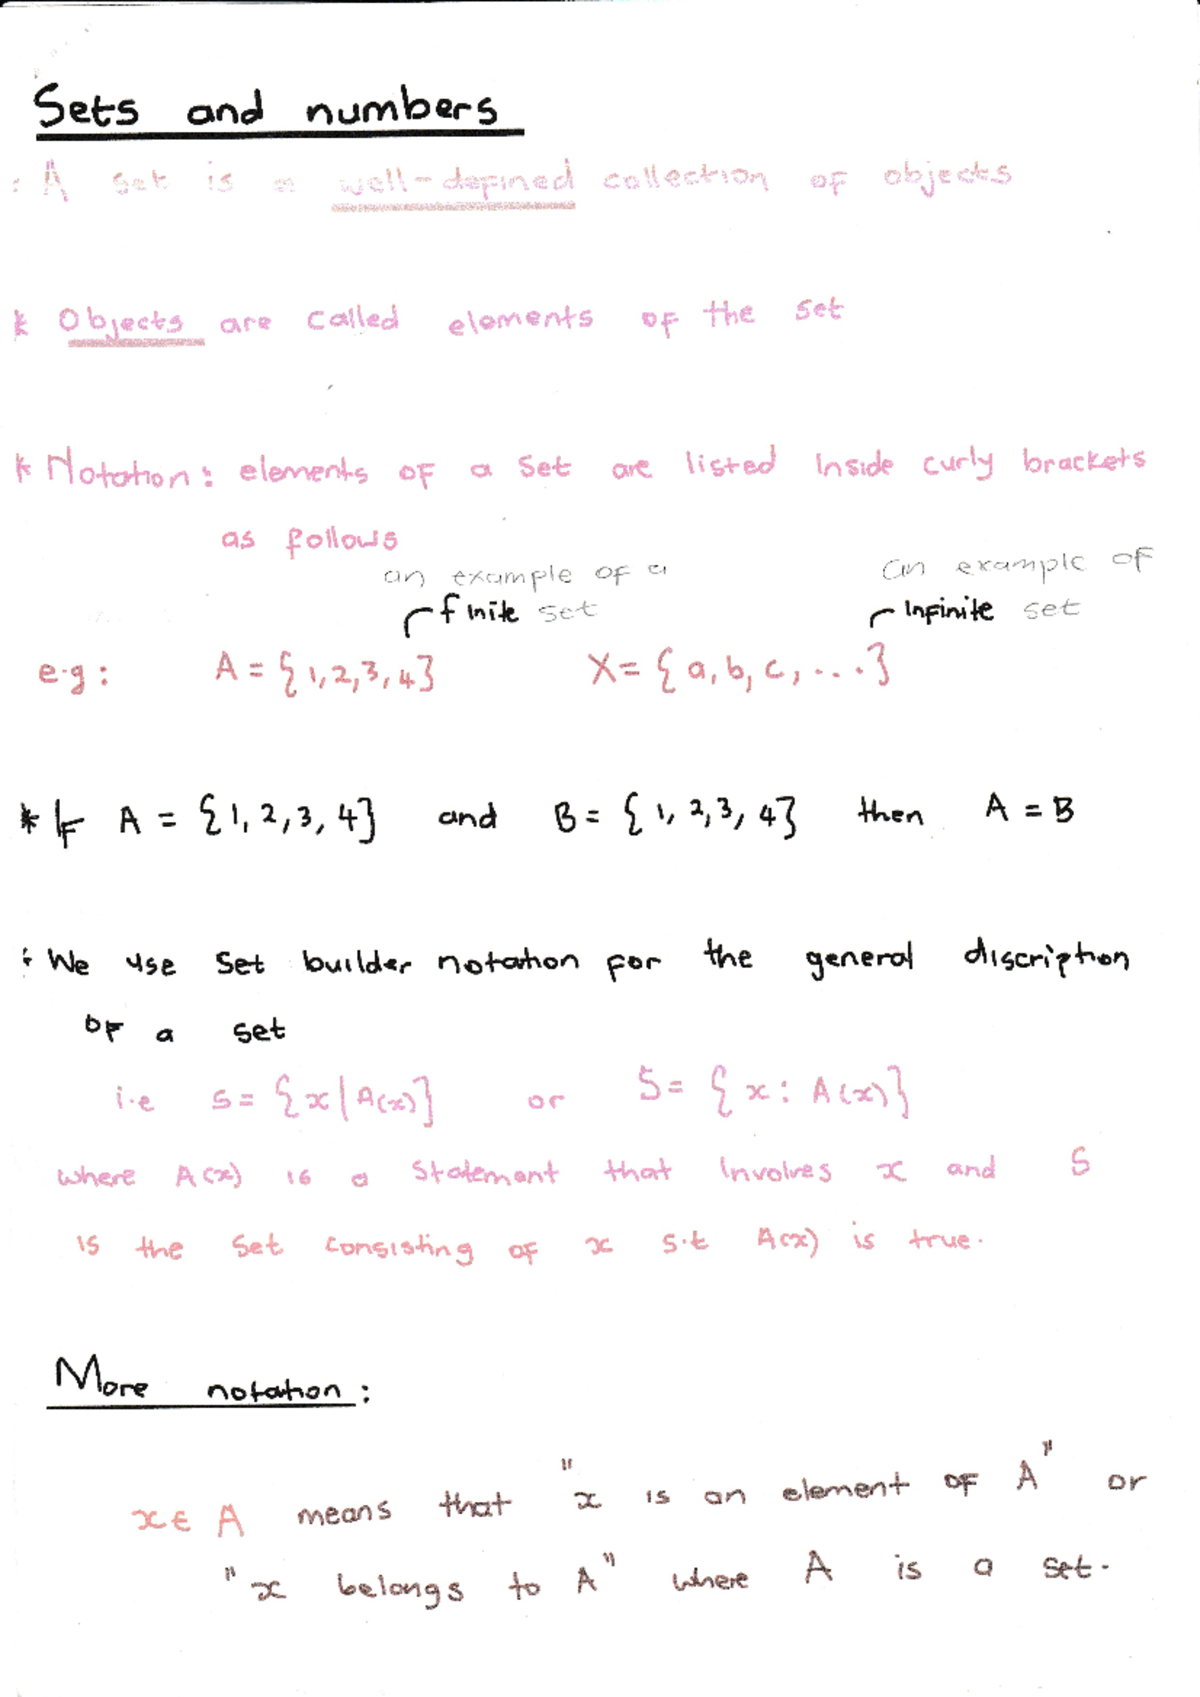 Sets and numbers
: A set is a well-defined collection of objects
* Objects are called elements of the set
* Notation: elements of a set are listed inside curly brackets
as follows
an example of a
finite set
an example of
infinite set
e.g: A = {1,2,3,4} X = {a, b, c, ....}
* If A = {1, 2, 3, 4} and B = {1, 2, 3, 4} then A = B
: We use set builder notation for the general discription
of a set
i.e S = {x | A(x)} or S = {x : A(x)}
where A(x) is a statement that involves x and S
is the set consisting of x s.t A(x) is true.
More notation:
x ∈ A means that "x is an element of A" or
"x belongs to A" where A is a set.